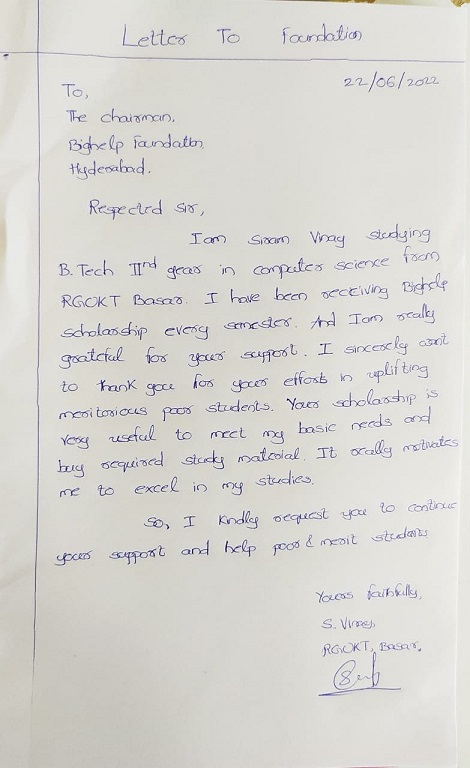 Letter To Foundation
22/06/2022
To,
The chairman,
Bighelp Foundation,
Hyderabad.
Respected sir,
I am Siram Vinay studying
B.Tech IInd year in computer science from
RGUKT Basar. I have been receiving Bighelp
scholarship every semester. And I am really
grateful for your support. I sincerely want
to thank you for your efforts in uplifting
meritorious poor students. Your scholarship is
very useful to meet my basic needs and
buy required study material. It really motivates
me to excel in my studies.
So, I kindly request you to continue
your support and help poor & merit students
Yours faithfully,
S. Vinay,
RGUKT, Basar.